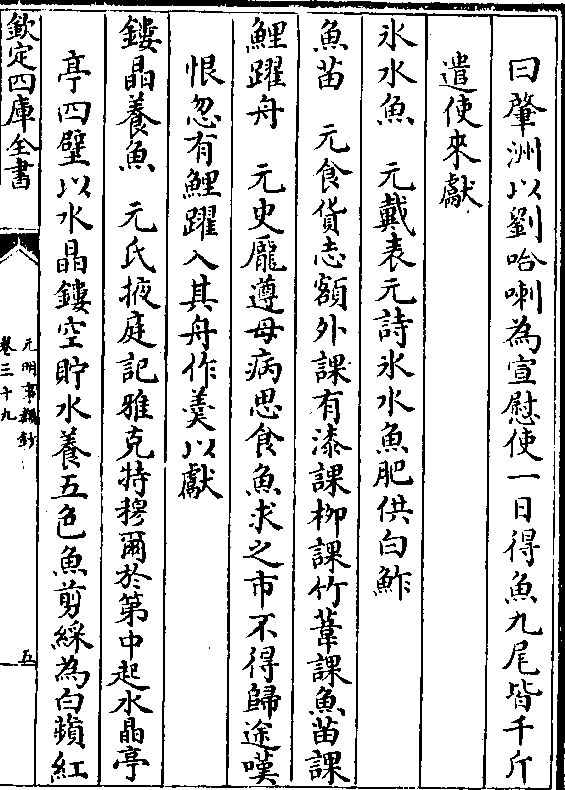 曰肇洲以劉哈喇為宣慰使一日得魚九尾皆千斤
遣使來獻
氷水魚　元戴表元詩氷水魚肥供白鮓
魚苗　元食貨志額外課有漆課柳課竹葦課魚苗課
鯉躍舟　元史龎遵母病思食魚求之市不得歸途嘆
恨忽有鯉躍入其舟作羮以獻
鏤晶養魚　元氏掖庭記雅克特穆爾於第中起水晶亭
亭四壁以水晶鏤空貯水養五色魚剪綵為白蘋紅
欽定四庫全書
元明事類鈔
卷三十九
五